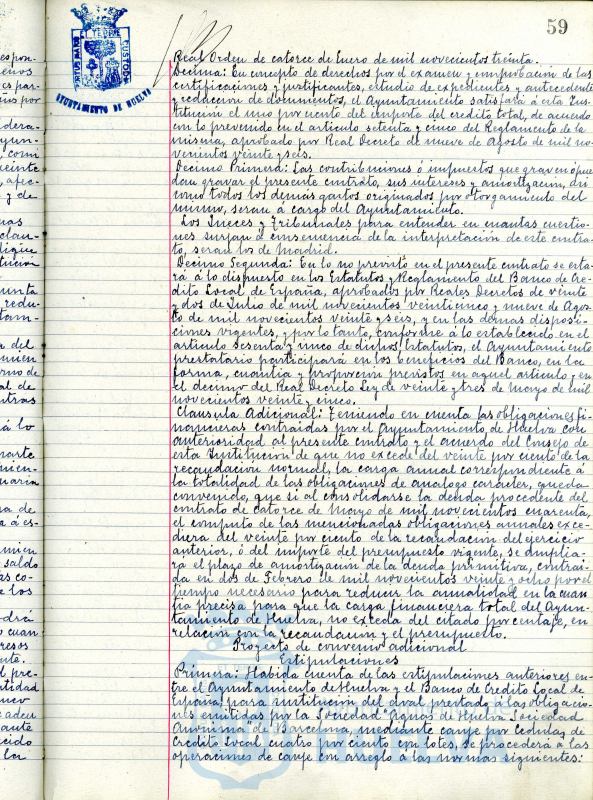 59
AYUNTAMIENTO DE HUELVA
Real Orden de catorce de Enero de mil novecientos treinta.
Decima: En concepto de derechos por el examen y comprobacion de las
certificaciones y justificantes, estudio de expedientes y antecedentes
y redaccion de documentos, el Ayuntamiento satisfará á esta Ins-
titucion el uno por ciento del importe del credito total, de acuerdo
con lo prevenido en el articulo setenta y cinco del Reglamento de la
misma, aprobado por Real Decreto de nueve de Agosto de mil no-
vecientos veinte y seis.
Decimo Primera: Las contribuciones ó impuestos que graven ó pue-
dan gravar el presente contrato, sus intereses y amortizacion, asi
como todos los demás gastos originados por otorgamiento del
mismo, seran á cargo del Ayuntamiento.
Los Jueces y Tribunales para entender en cuantas cuestio-
nes surjan á consecuencia de la interpretacion de este contra-
to, seran los de Madrid.
Decimo Segunda: En lo no previsto en el presente contrato se esta-
rá á lo dispuesto en los Estatutos y Reglamento del Banco de Cre-
dito Local de España, aprobados por Reales Decretos de veinte
y dos de Julio de mil novecientos veinticinco y nueve de Agos-
to de mil novecientos veinte y seis, y en las demas disposi-
ciones vigentes, y por lo tanto, conforme á lo establecido en el
articulo sesenta y cinco de dichos Estatutos, el Ayuntamiento
prestatario participará en los beneficios del Banco, en la
forma, cuantia y proporcion previstos en aquel articulo y en
el decimo del Real Decreto Ley de veinte y tres de Mayo de mil
novecientos veinte y cinco.
Clausula Adicional: Teniendo en cuenta las obligaciones fi-
nancieras contraidas por el Ayuntamiento de Huelva con
anterioridad al presente contrato y el acuerdo del Consejo de
esta Institucion de que no excede del veinte por ciento de la
recaudacion normal, la carga anual correspondiente á
la totalidad de las obligaciones de analogo caracter, queda
convenido, que si al consolidarse la deuda procedente del
contrato de catorce de Mayo de mil novecientos cuarenta,
el computo de las mencionadas obligaciones anuales exce-
diera del veinte por ciento de la recaudacion del ejercicio
anterior, ó del importe del presupuesto vigente, se amplia-
rá el plazo de amortizacion de la deuda primitiva, contrai-
da en dos de Febrero de mil novecientos veinte y ocho por el
tiempo necesario para reducir la anualidad en la cuan-
tia precisa para que la carga financiera total del Ayun-
tamiento de Huelva, no exceda del citado porcentaje, en
relacion con la recaudacion y el presupuesto.
Proyecto de convenio adicional
Estipulaciones
Primera: Habida cuenta de las estipulaciones anteriores en-
tre el Ayuntamiento de Huelva y el Banco de Credito Local de
España para sustitucion del aval prestado á las obligacio-
nes emitidas por la Sociedad "Aguas de Huelva Sociedad
Anonima" de Barcelona, mediante canje por Cedulas de
Credito Local cuatro por ciento con lotes, se procederá a las
operaciones de canje con arreglo á las normas siguientes: